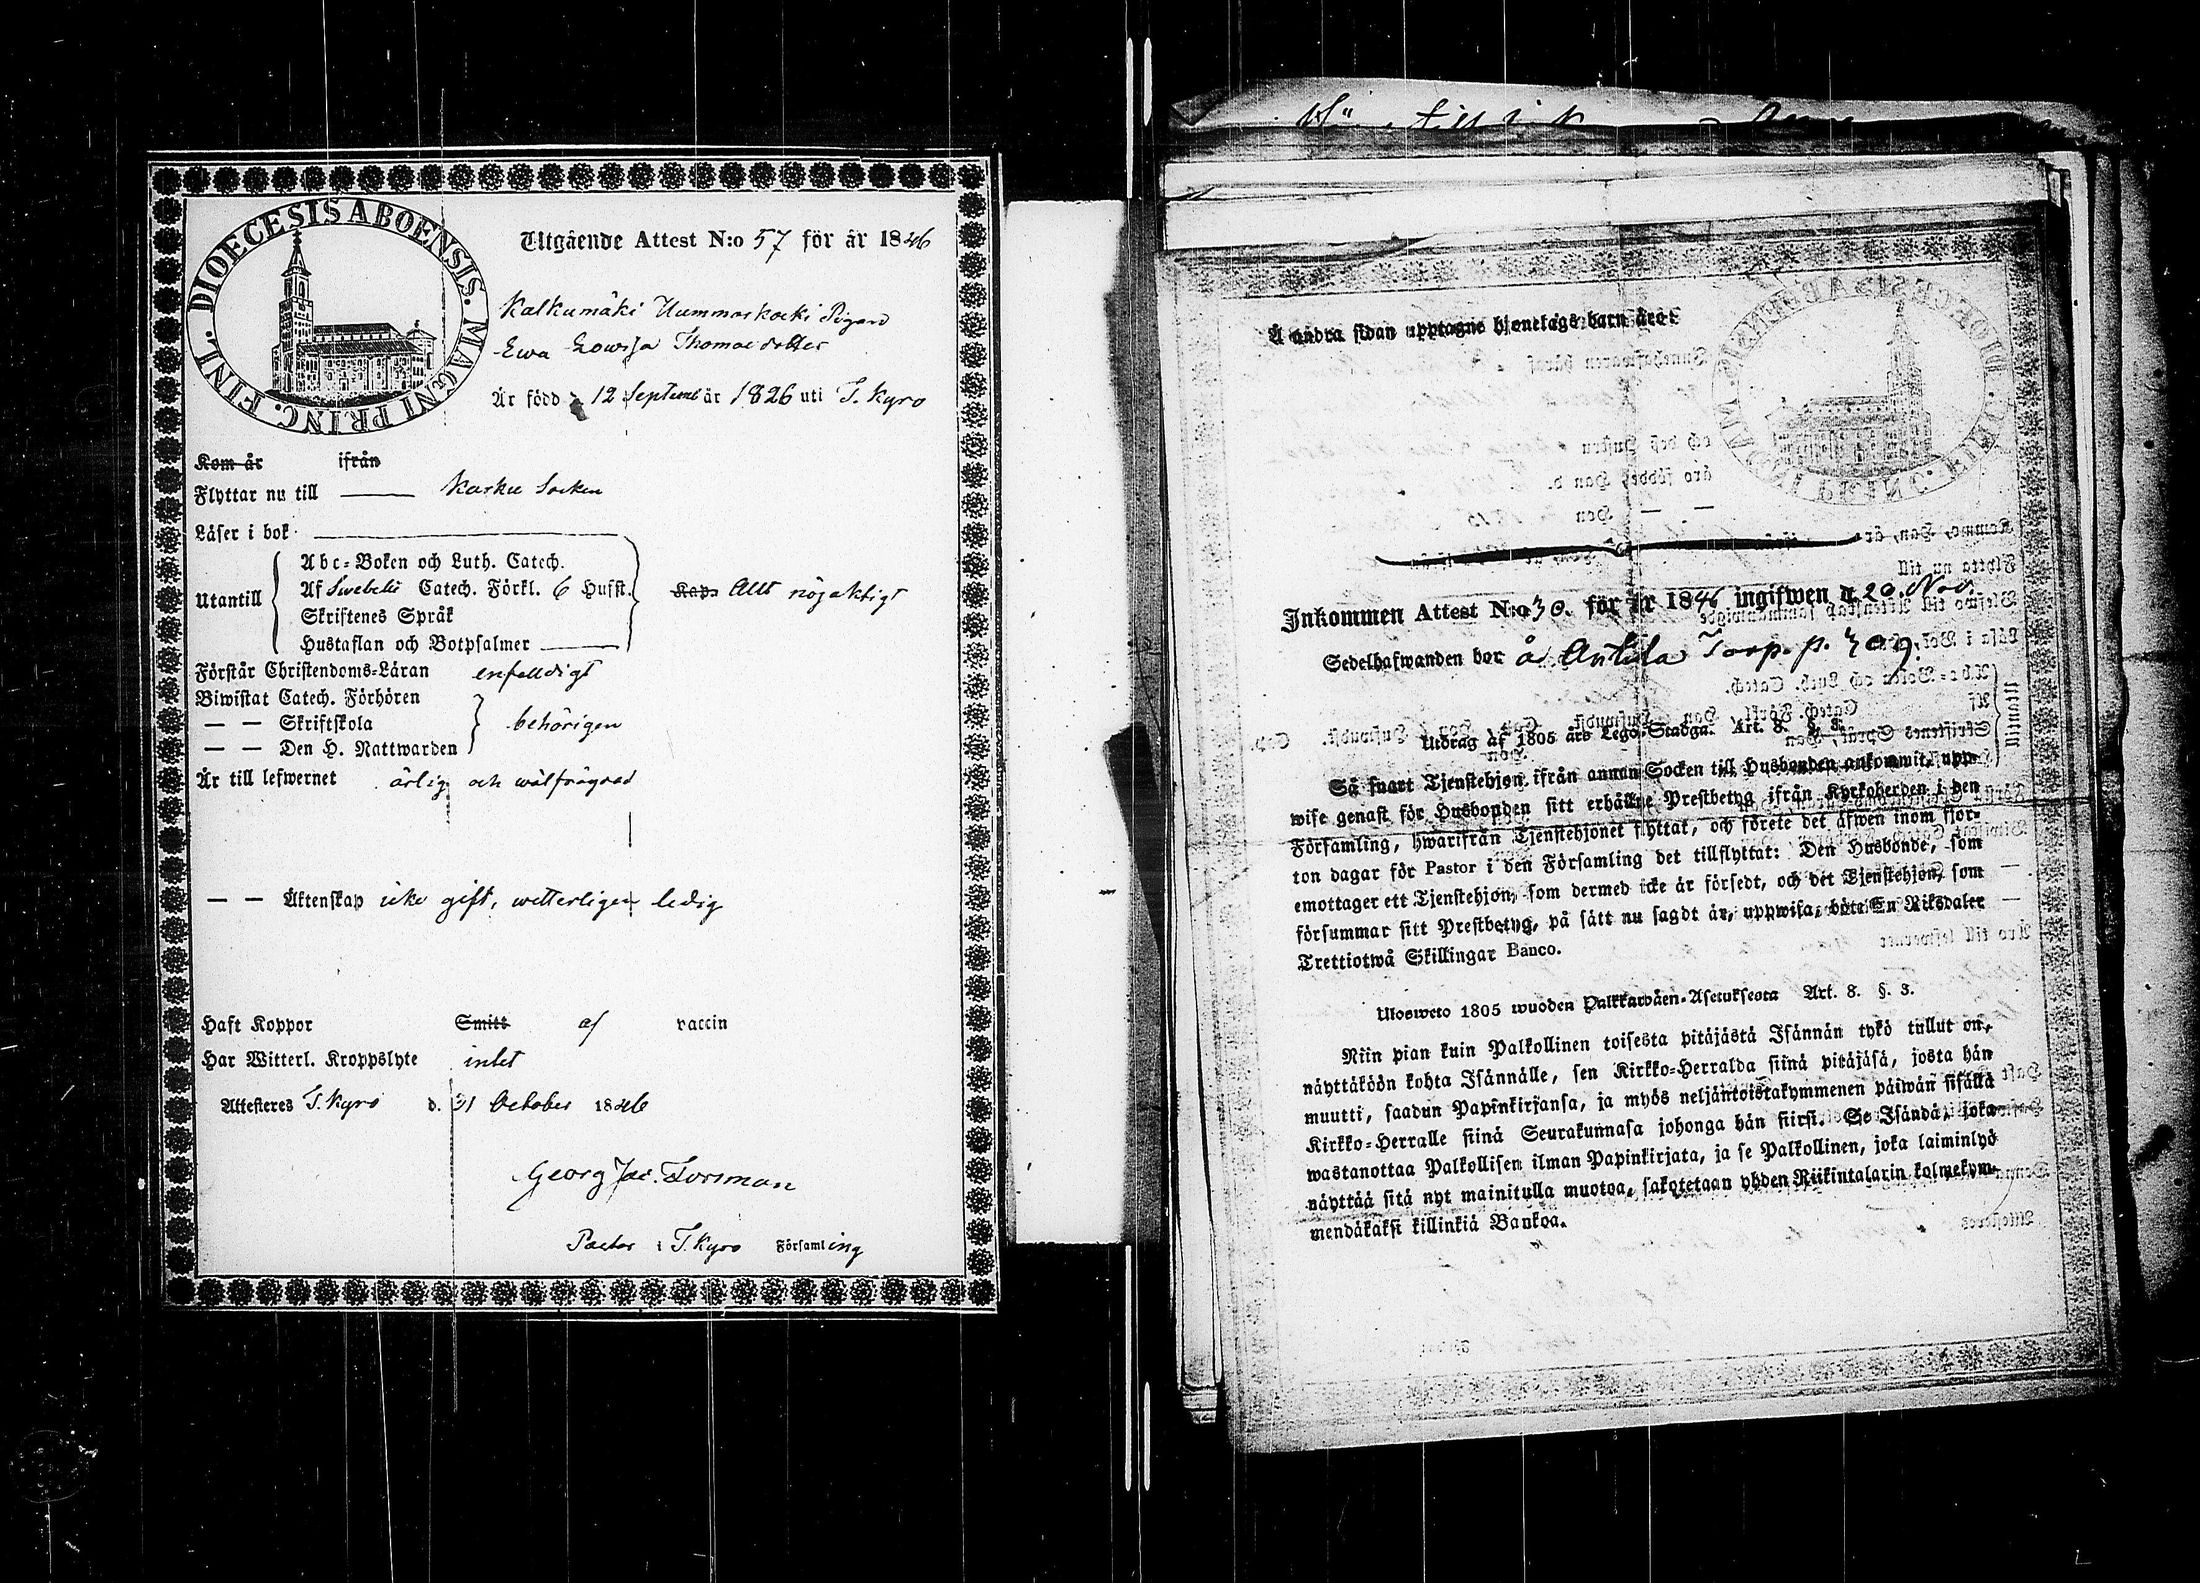 DIOECESIS ABOENSIS. MAGNI PRINC. FINL.
Utgående Attest N:o 57 för år 1846
Kalkumäki Uummarkoski Pigan
Ewa Lowisa Thomae dotter
Är född d. 12 Septemb år 1826 uti T. Kyro
Kom år ifrån
Flyttar nu till Karku Socken
Läser i bok
Utantill
Abc-Boken och Luth. Catech.
Af Swebelii Catech. Förkl. 6 Hufst.
Kap. Allt nöjaktigt
Skriftenes Språk
Hustaflan och Botpsalmer
Förstår Christendoms-Läran enfaldigt
Biwistat Catech. Förhören
— — Skriftskola behörigen
— — Den H. Nattwarden
Är till lefwernet ärlig och wälfrägdad
— — Äktenskap icke gift, wetterligen ledig
Haft Koppor Smitt af vaccin
Har Witterl. Kroppslyte intet
Attesteres T. Kyro d. 31 October 1846
Georg Jac. Forsman
Pastor i T. Kyro Församling
Å andra sidan upptagne hjonelags barn äro:
Inkommen Attest N:o 30. för år 1846 ingifwen d. 20. Nov.
Sedelhafwanden bor å Antila Torp. p. 309.
Utdrag af 1805 års Lego-Stadga. Art. 8. §. 3.
Så snart Tjenstehjon ifrån annan Socken till Husbonden ankommit, upp-
wise genast för Husbonden sitt erhållne Prestbetyg ifrån Kyrkoherden i den
Församling, hwarifrån Tjenstehjonet flyttat, och förete det äfwen inom fjor-
ton dagar för Pastor i den Församling det tillflyttat: Den Husbonde, som
emottager ett Tjenstehjon, som dermed icke är försedt, och det Tjenstehjon, som
försummar sitt Prestbetyg, på sätt nu sagdt är, uppwisa, böte En Riksdaler
Trettiotwå Skillingar Banco.
Ulosweto 1805 wuoden Palkkawäen-Asetuksesta Art. 8. §. 3.
Niin pian kuin Palkollinen toisesta pitäjästä Isännän tykö tullut on,
näyttäköön kohta Isännälle, sen Kirkko-Herralda siinä pitäjäsä, josta hän
muutti, saadun Papinkirjansa, ja myös neljäntoistakymmenen päiwän sisällä
Kirkko-Herralle siinä Seurakunnasa johonga hän siirsi. Se Isändä, joka
wastanottaa Palkollisen ilman Papinkirjata, ja se Palkollinen, joka laiminlyö
näyttää sitä nyt mainitulla muotoa, sakotetaan yhden Riikintalarin kolmekym-
mendäkaksi killinkiä Bankoa.